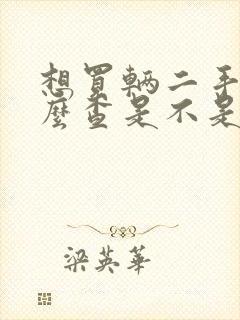 想買輛二手
麼查是不是
梁英華